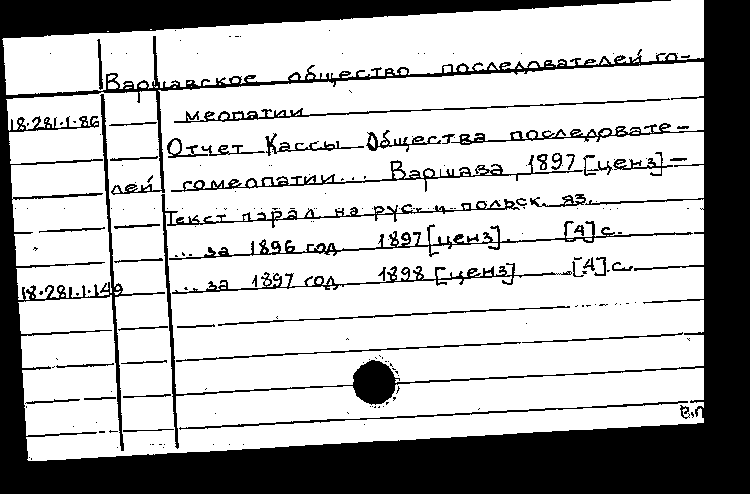 Варшавское общество последователей го-
18.281.1.86 меопатии
Отчет Кассы Общества последовате-
лей гомеопатии... Варшава, 1897 [ценз] –
Текст парал на рус. и польск. яз.
... за 1896 год 1897 [ценз]. [4] с.
18.281.1.149 ... за 1897 год 1898 [ценз]. [4] с.
В.П